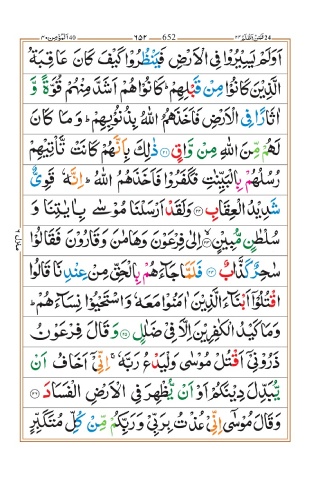 652 ٦٥٢
اَوَلَمْ يَسِيْرُوْا فِي الْاَرْضِ فَيَنْظُرُوْا كَيْفَ كَانَ عَاقِبَةُ
الَّذِيْنَ كَانُوْا مِنْ قَبْلِهِمْ ؕ كَانُوْا هُمْ اَشَدَّ مِنْهُمْ قُوَّةً وَّ
اٰثَارًا فِي الْاَرْضِ فَاَخَذَهُمُ اللّٰهُ بِذُنُوْبِهِمْ ؕ وَمَا كَانَ
لَهُمْ مِّنَ اللّٰهِ مِنْ وَّاقٍ ﴿٢١﴾ ذٰلِكَ بِاَنَّهُمْ كَانَتْ تَّاْتِيْهِمْ
رُسُلُهُمْ بِالْبَيِّنٰتِ فَكَفَرُوْا فَاَخَذَهُمُ اللّٰهُ ؕ اِنَّهٗ قَوِيٌّ
شَدِيْدُ الْعِقَابِ ﴿٢٢﴾ وَلَقَدْ اَرْسَلْنَا مُوْسٰى بِاٰيٰتِنَا وَ
سُلْطٰنٍ مُّبِيْنٍ ﴿٢٣﴾ اِلٰى فِرْعَوْنَ وَهَامٰنَ وَقَارُوْنَ فَقَالُوْا
سٰحِرٌ كَذَّابٌ ﴿٢٤﴾ فَلَمَّا جَآءَهُمْ بِالْحَقِّ مِنْ عِنْدِنَا قَالُوا
اقْتُلُوْۤا اَبْنَآءَ الَّذِيْنَ اٰمَنُوْا مَعَهٗ وَاسْتَحْيُوْا نِسَآءَهُمْ ؕ
وَمَا كَيْدُ الْكٰفِرِيْنَ اِلَّا فِيْ ضَلٰلٍ ﴿٢٥﴾ وَقَالَ فِرْعَوْنُ
ذَرُوْنِيْۤ اَقْتُلْ مُوْسٰى وَلْيَدْعُ رَبَّهٗ ۚ اِنِّيْۤ اَخَافُ اَنْ
يُّبَدِّلَ دِيْنَكُمْ اَوْ اَنْ يُّظْهِرَ فِي الْاَرْضِ الْفَسَادَ ﴿٢٦﴾
وَقَالَ مُوْسٰۤى اِنِّيْ عُذْتُ بِرَبِّيْ وَرَبِّكُمْ مِّنْ كُلِّ مُتَكَبِّرٍ